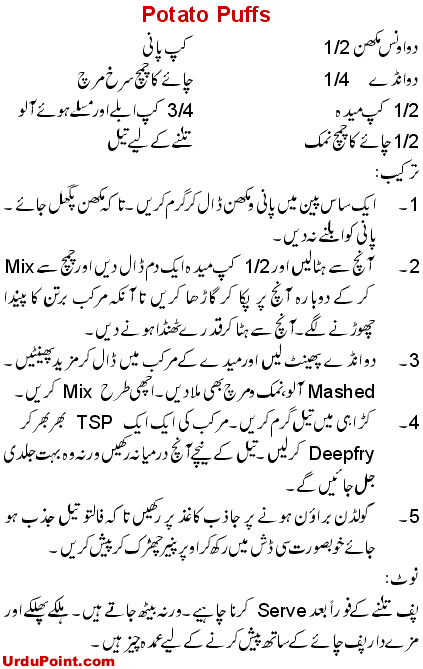 Potato Puffs
دو اونس مکھن 1/2 کپ پانی
دو انڈے 1/4 چائے کا چمچ سرخ مرچ
1/2 کپ میدہ 3/4 کپ ابلے اور مسلے ہوئے آلو
1/2 چائے کا چمچ نمک تلنے کے لیے تیل
ترکیب:
1۔ ایک ساس پین میں پانی و مکھن ڈال کر گرم کریں۔ تاکہ مکھن پگھل جائے۔
پانی کو ابلنے نہ دیں۔
2۔ آنچ سے ہٹا لیں اور 1/2 کپ میدہ ایک دم ڈال دیں اور چمچ سے Mix
کر کے دوبارہ آنچ پر پکا کر گاڑھا کریں تا آنکہ مرکب برتن کا پیندا
چھوڑنے لگے۔ آنچ سے ہٹا کر قدرے ٹھنڈا ہونے دیں۔
3۔ دو انڈے پھینٹ لیں اور میدے کے مرکب میں ڈال کر مزید پھینٹیں۔
Mashed آلو، نمک و مرچ بھی ملا دیں۔ اچھی طرح Mix کریں۔
4۔ کڑاہی میں تیل گرم کریں۔ مرکب کی ایک ایک TSP بھر بھر کر
Deepfry کر لیں۔ تیل کے نیچے آنچ درمیانہ رکھیں ورنہ وہ بہت جلدی
جل جائیں گے۔
5۔ گولڈن براؤن ہونے پر جاذب کاغذ پر رکھیں تاکہ فالتو تیل جذب ہو
جائے خوبصورت سی ڈش میں رکھ کر اوپر پنیر چھڑک کر پیش کریں۔
نوٹ:
پف تلنے کے فوراً بعد Serve کرنا چاہیے۔ ورنہ بیٹھ جاتے ہیں۔ ہلکے پھلکے اور
مزے دار پف چائے کے ساتھ پیش کرنے کے لیے عمدہ چیز ہیں۔
UrduPoint.com